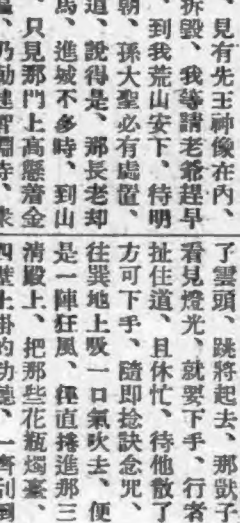 、見有先王神像在內、
拆毀、我等請老爺趕早
、到我荒山安下、待明
朝、孫大聖必有處置、
道、說得是、那長老却
馬、進城不多時、到山
、只見那門上高懸着金
、乃勅建智淵寺、衆
了雲頭、跳將起去、那獃子
看見燈光、就要下手、行者
扯住道、且休忙、待他散了
方可下手、隨即捻訣念咒、
往巽地上吸一口氣吹去、便
是一陣狂風、徑直捲進那三
清殿上、把那些花瓶燭臺、
四壁上掛的功德、一齊刮倒